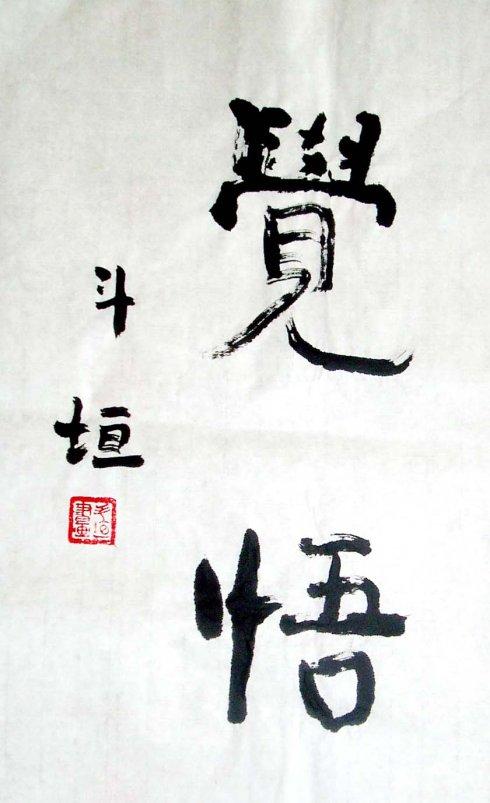 覺悟
斗垣